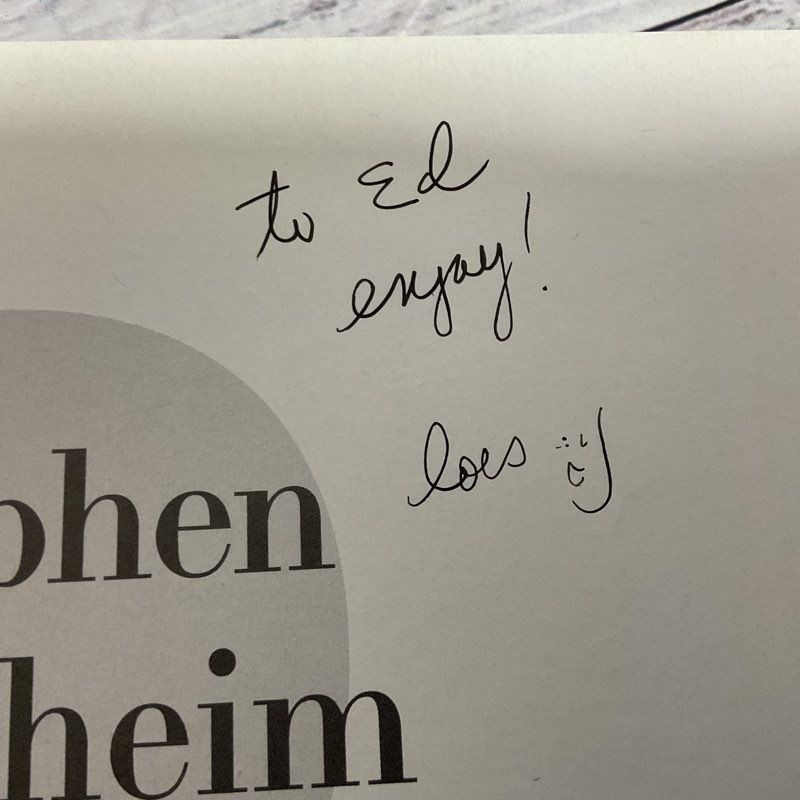 to Ed
enjoy!
lois :)
phen
heim